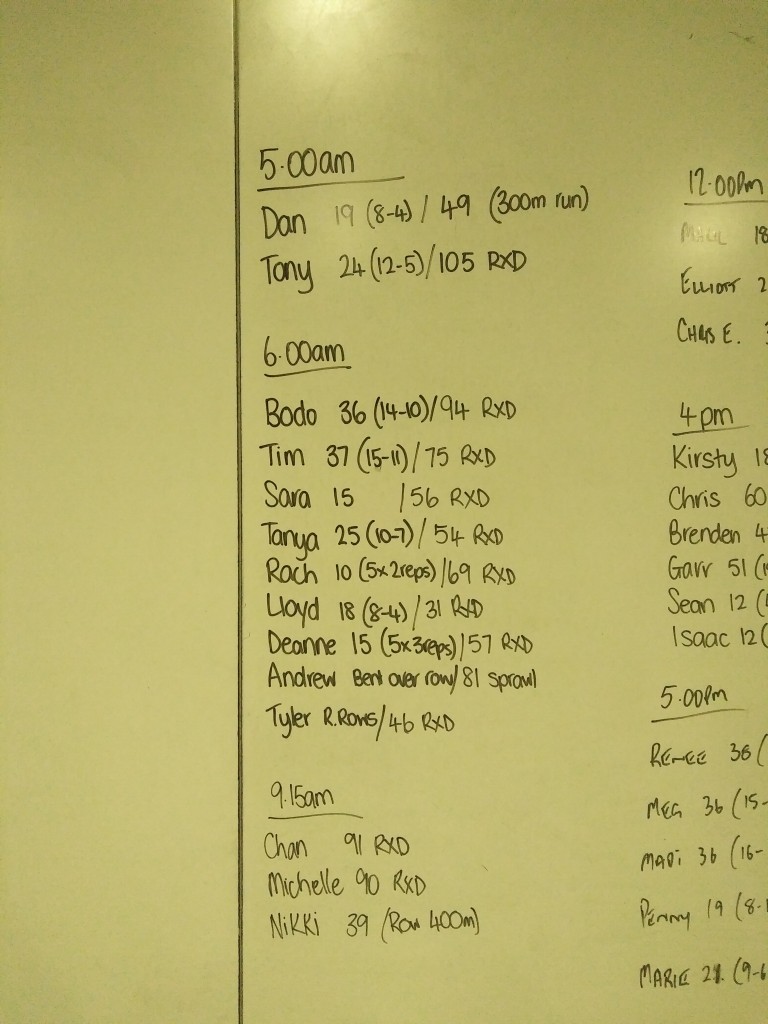 5.00am
Dan 19 (8-4) / 49 (300m run)
Tony 24 (12-5)/105 RXD
6.00am
Bodo 36 (14-10)/94 RXD
Tim 37 (15-11)/75 RXD
Sara 15 /56 RXD
Tanya 25 (10-7)/ 54 RXD
Rach 10 (5x2reps)/69 RXD
Lloyd 18 (8-4)/31 RXD
Deanne 15 (5x3reps)/57 RXD
Andrew Bent over row/81 sprawl
Tyler R.Rows/46 RXD
9.15am
Chan 91 RXD
Michelle 90 RXD
Nikki 39 (Row 400m)
12.00pm
18
Elliott 2
Chris E. 3
4pm
Kirsty 18
Chris 60
Brenden 4
Garr 51 (1
Sean 12 (
Isaac 12 (
5.00pm
Renee 36 (
Meg 36 (15-
Madi 36 (16-
Penny 19 (8-
Marie 21 (9-6